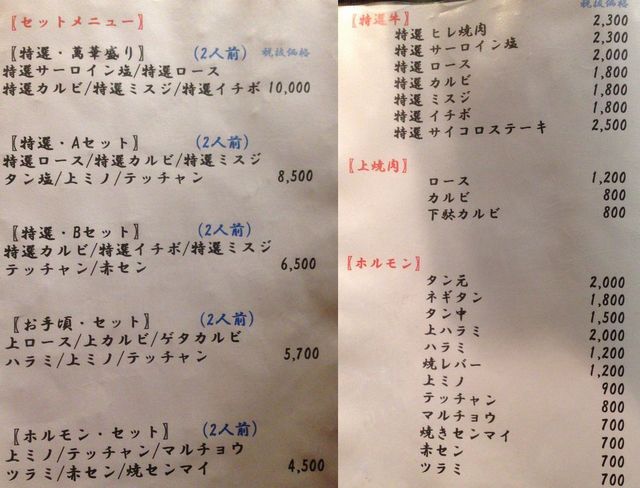 〖セットメニュー〗
〖特選・萬華盛り〗 (2人前) 税抜価格
特選サーロイン塩/特選ロース
特選カルビ/特選ミスジ/特選イチボ 10,000
〖特選・Aセット〗 (2人前)
特選ロース/特選カルビ/特選ミスジ
タン塩/上ミノ/テッチャン 8,500
〖特選・Bセット〗 (2人前)
特選カルビ/特選イチボ/特選ミスジ
テッチャン/赤セン 6,500
〖お手頃・セット〗 (2人前)
上ロース/上カルビ/ゲタカルビ
ハラミ/上ミノ/テッチャン 5,700
〖ホルモン・セット〗 (2人前)
上ミノ/テッチャン/マルチョウ
ツラミ/赤セン/焼センマイ 4,500
税抜価格
〖特選牛〗
特選 ヒレ焼肉 2,300
特選 サーロイン塩 2,300
特選 ロース 2,000
特選 カルビ 1,800
特選 ミスジ 1,800
特選 イチボ 1,800
特選 サイコロステーキ 2,500
〖上焼肉〗
ロース 1,200
カルビ 800
下駄カルビ 800
〖ホルモン〗
タン元 2,000
ネギタン 1,800
タン中 1,500
上ハラミ 2,000
ハラミ 1,200
焼レバー 1,200
上ミノ 900
テッチャン 800
マルチョウ 700
焼きセンマイ 700
赤セン 700
ツラミ 700